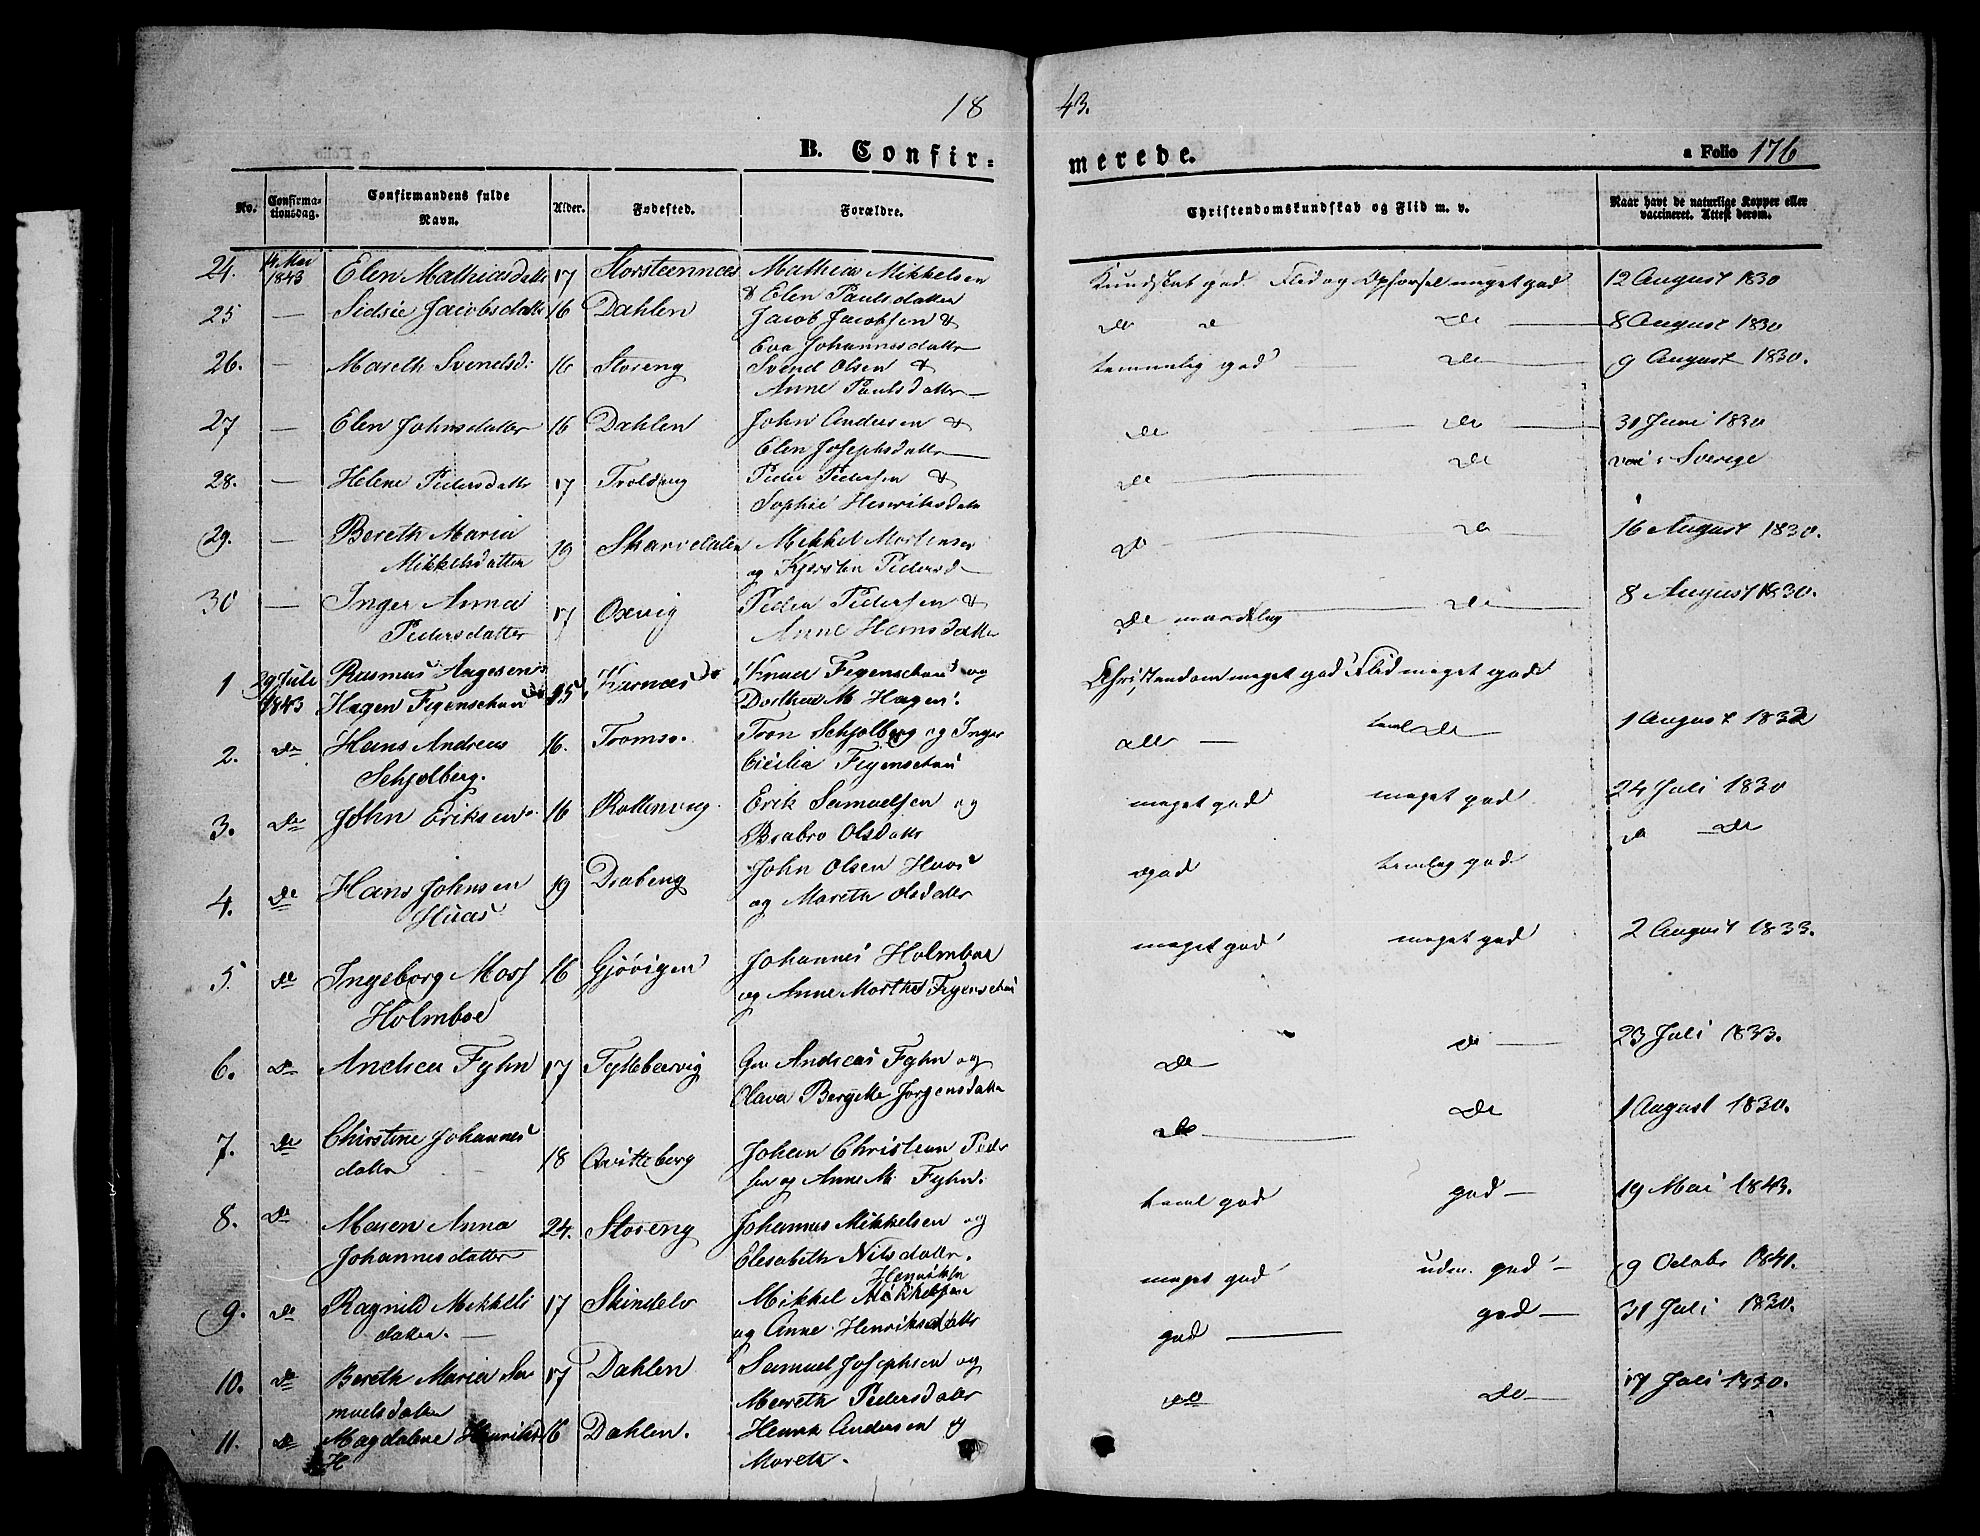 18 43.
B. Confir= merede. a Folio 176
No. Confirma-tionsdag. Confirmandens fulde Navn. Alder. Fødested. Forældre. Christendomskundskab og Flid m. v. Naar havt de naturlige Kopper eller vaccineret. Attest derom.
24. Mai 1843 Elen Mathiasdatter 17 Storsteennæs Mathias Mikkelsen Kundskab god. Flid og Opførsel meget god 12 August 1830
& Elen Paulsdatter
25 — Sidsie Jacobsdatter 16 Dahlen Jacob Jacobsen & Do Do Do — 8 August 1830
Eva Johannesdatter
26. — Mareth Svendsd: 16 Storeng Svend Olsen & temmelig god — Do — 9 August 1830.
Anne Paulsdatter —
27 — Elen Johnsdatter 16 Dahlen John Andersen & Do — Do — 30 Juni 1830
Elen Josephsdatter —
28. — Helene Pedersdatter 17 Troldvig Peder Pedersen & Do — Do Sverige
Sophie Henriksdatter
29. — Bereth Maria 19 Skarvedalen Mikkel Mortensen Do — Do — 16 August 1830.
Mikkelsdatter og Kjersten Pedersd —
30 — Inger Anna 17 Oxvig Peder Pedersen & Do mundtlig — Do — 8 August 1830.
Pedersdatter Anne Hansdatter
1 29 Juli 1843 Rasmus Aagesen Knud Figenschau og Christendom meget god Flid meget god
Hagen Figenschau 15 Dorthea M Hagen.
2. Do Hans Andreas 16. Tromsø. Tron Schjølberg og Inger Do — teml Do — 1 August 1832
Schjølberg. Cicilia Figenschau
3. Do John Eriksen. 16 Rottenvig. Erik Samuelsen og meget god meget god 24 Juli 1830
Brabro Olsdatter
4. Do Hans Johnsen 19 Draberg John Olsen Huas god temlig god Do — Do
Huas og Mareth Olsdatter
5. Do Ingeborg Mosf 16 Gjøvigen Johannes Holmboe meget god meget god 2 August 1833.
Holmboe og Anne Marthe Figenschau
6. Do Andrea Fyhn 17 Andreas Fyhn og Do — Do — 23 Juli 1833.
Olava Bergitte Jørgensdatter
7. Do Christine Johannes 18 Qvitteberg Johan Christian Peder Do — Do 1 August 1830.
datter sen og Anne M. Fyhn.
8. Do Maren Anna 24. Storeng Johannes Mikkelsen og teml god god — 19 Mai 1843.
Johannesdatter Elesabeth Nilsdatter.
9. Do Ragnild Mikkels 17 Skindelv Mikkel Henriksen meget god udm. god — 9 Octobr 1840.
datter. — og Anne Henriksdatter god — god — 31 Juli 1830.
10. Do Bereth Maria Sa 17 Dahlen Samuel Josephsen og
muelsdatter Mareth Pedersdatter Do Do — 17 Juli 1830.
11. Do Magdalene Henriksd 16 Dahlen. Henrik Andersen og
H Mareth.